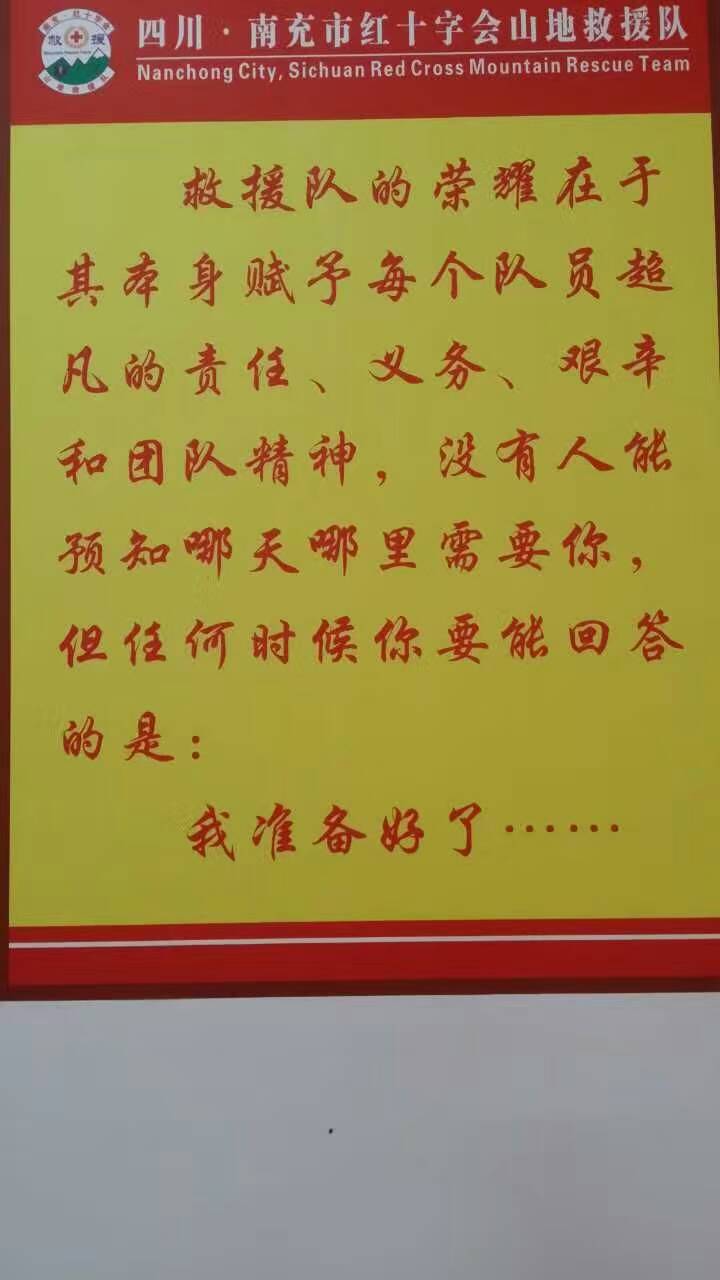 四川·南充市红十字会山地救援队
Nanchong City, Sichuan Red Cross Mountain Rescue Team
救援
救援队的荣耀在于
其本身赋予每个队员超
凡的责任、义务、艰辛
和团队精神，没有人能
预知哪天哪里需要你，
但任何时候你要能回答
的是：
我准备好了……